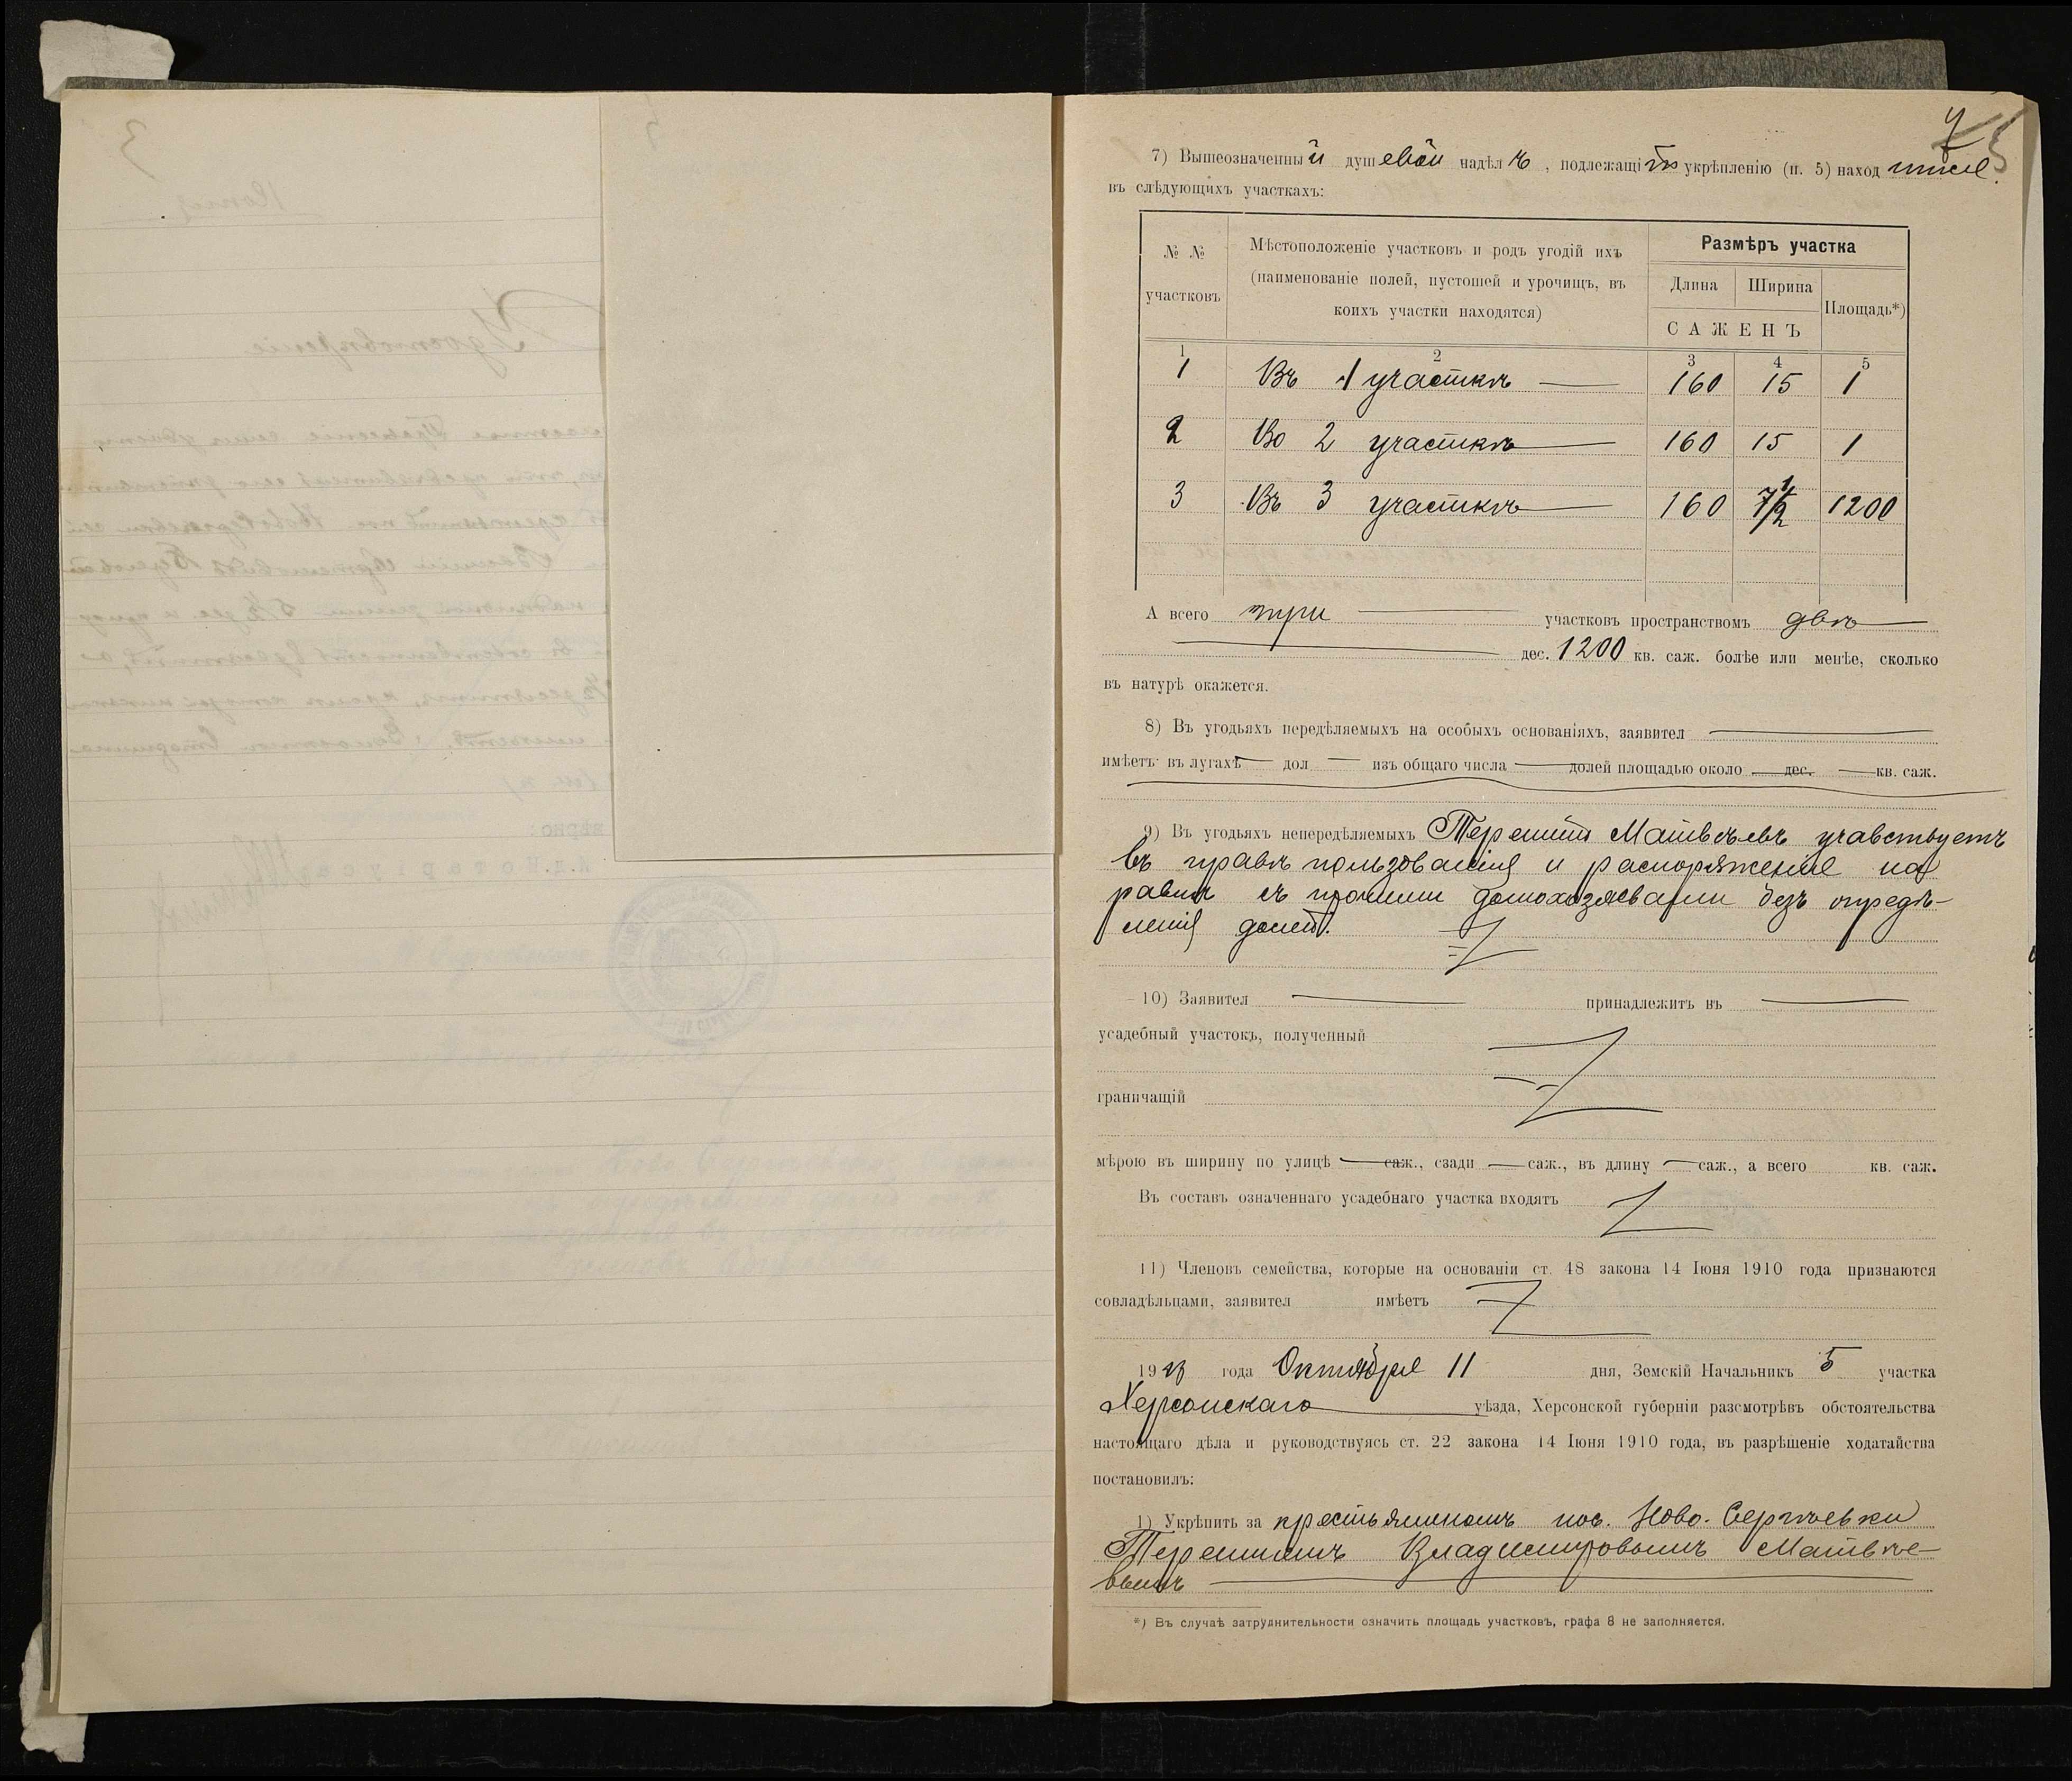 7) Вышеозначенный душевой надѣлъ, подлежащій укрѣпленію (п. 5) находится
въ слѣдующихъ участкахъ:
№ № участковъ
Мѣстоположеніе участковъ и родъ угодій ихъ
(наименованіе полей, пустошей и урочищъ, въ
коихъ участки находятся)
Размѣръ участка
Длина Ширина Площадь*)
САЖЕНЪ
1 2 3 4 5
1 Въ 1 участкѣ 160 15 1
2 Во 2 участкѣ 160 15 1
3 Въ 3 участкѣ 160 7 1/2 1200
А всего три участковъ пространствомъ двѣ
дес. 1200 кв. саж. болѣе или менѣе, сколько
въ натурѣ окажется.
8) Въ угодьяхъ передѣляемыхъ на особыхъ основаніяхъ, заявител
имѣетъ въ лугахъ дол изъ общаго числа долей площадью около дес. кв. саж.
9) Въ угодьяхъ непередѣляемыхъ Терентій Матвѣевъ учавствуетъ
въ правѣ пользованія и распоряженія на
равнѣ съ прочими домохозяевами безъ опредѣ-
ленія долей.
10) Заявител принадлежитъ въ
усадебный участокъ, полученный
граничащій
мѣрою въ ширину по улицѣ саж., сзади саж., въ длину саж., а всего кв. саж.
Въ составъ означеннаго усадебнаго участка входятъ
11) Членовъ семейства, которые на основаніи ст. 48 закона 14 Іюня 1910 года признаются
совладѣльцами, заявител имѣетъ
19 года Октября 11 дня, Земскій Начальникъ 5 участка
Херсонскаго уѣзда, Херсонской губерніи разсмотрѣвъ обстоятельства
настоящаго дѣла и руководствуясь ст. 22 закона 14 Іюня 1910 года, въ разрѣшеніе ходатайства
постановилъ:
1) Укрѣпить за крестьяниномъ пос. Ново-Сергѣевки
Терентіемъ Владимировымъ Матвѣе-
вымъ
*) Въ случаѣ затруднительности означить площадь участковъ, графа 8 не заполняется.